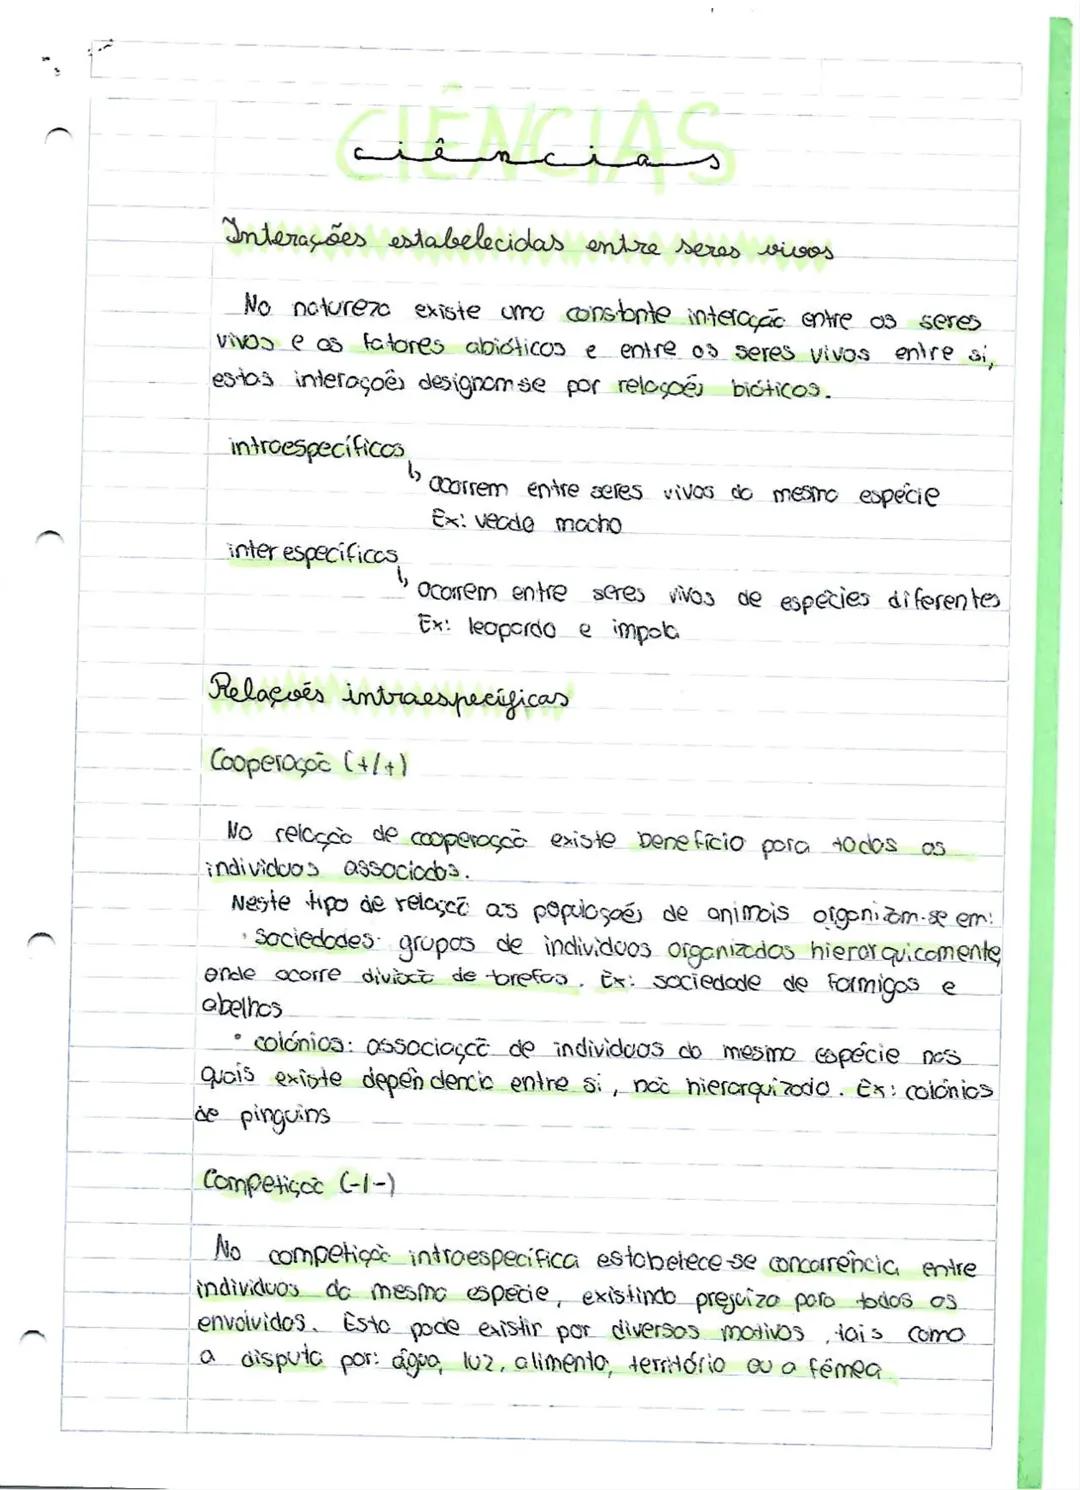 CIÊNCIAS
ciências
Interações estabelecidas entre seres vivos
Na natureza existe uma constante interação entre os seres
vivos e os fatores abióticos e entre os seres vivos entre si,
estas interações designam-se por relações bióticas.
intraespecíficas
↳ ocorrem entre seres vivos da mesma espécie
Ex: veado macho
interespecíficas
↳ ocorrem entre seres vivos de espécies diferentes
Ex: leopardo e impala
Relações intraespecíficas
Cooperação (+/+)
Na relação de cooperação existe benefício para todos os
indivíduos associados.
Neste tipo de relação as populações de animais organizam-se em:
• Sociedades- grupos de indivíduos organizados hierarquicamente,
onde ocorre divisão de tarefas. Ex: sociedade de formigas e
abelhas
• colónias: associação de indivíduos da mesma espécie nas
quais existe dependencia entre si, não hierarquizada. Ex: colónias
de pinguins
Competição (-/-)
Na competição intraespecífica estabelece-se concorrência entre
indivíduos da mesma espécie, existindo prejuízo para todos os
envolvidos. Esta pode existir por diversos motivos, tais como
a disputa por: água, luz, alimento, território ou a fêmea